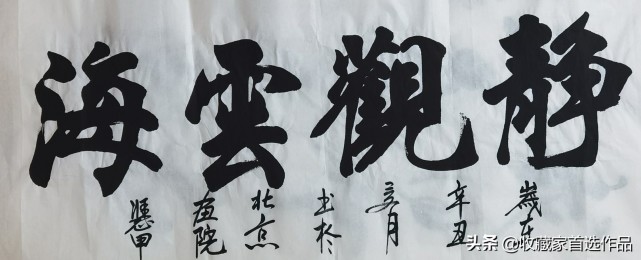 静觀雲海
歲在
辛丑
月
书於
北京
画院
头条 @收藏家首选作品